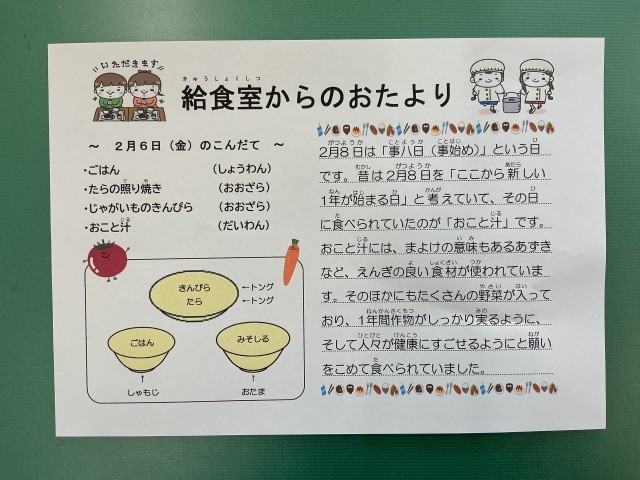 いただきます
給食室からのおたより
～　2月6日（金）のこんだて　～
・ごはん　（しょうわん）
・たらの照り焼き　（おおざら）
・じゃがいものきんぴら　（おおざら）
・おこと汁　（だいわん）
きんぴら　←トング
たら　←トング
ごはん　みそしる
↑　↑
しゃもじ　おたま
2月8日は「事八日（事始め）」という日
です。昔は2月8日を「ここから新しい
1年が始まる日」と考えていて、その日
に食べられていたのが「おこと汁」です。
おこと汁には、まよけの意味もあるあずき
など、えんぎの良い食材が使われていま
す。そのほかにもたくさんの野菜が入って
おり、1年間作物がしっかり実るように、
そして人々が健康にすごせるようにと願い
をこめて食べられていました。